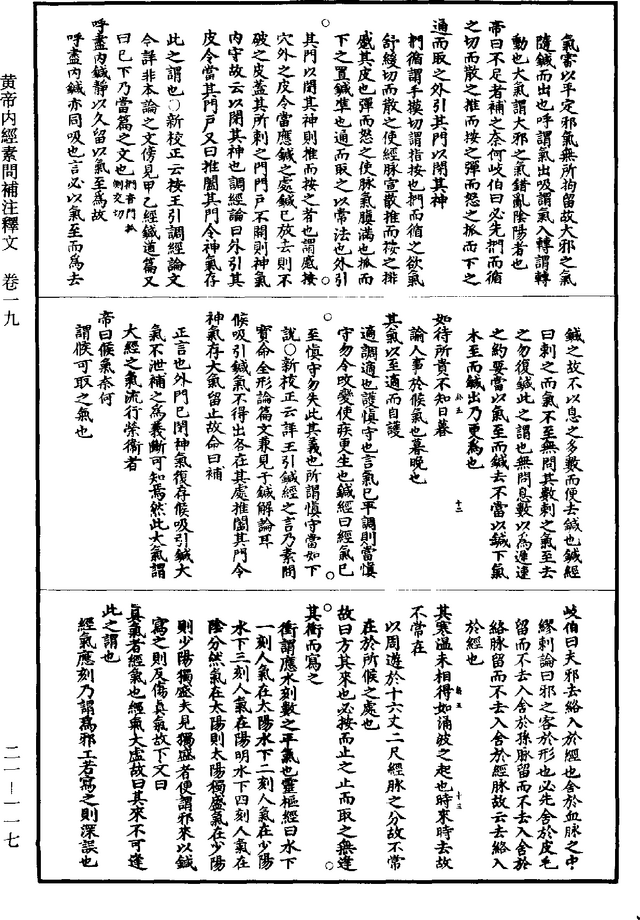 黄帝内經素問補注釋文　卷一九
二一—一一七
氣當以平定邪氣無所拘留故大邪之氣
隨鍼而出也呼謂氣出吸謂氣入轉謂轉
動也大氣謂大邪之氣錯亂陰陽者也
帝曰不足者補之奈何岐伯曰必先捫而循
之切而散之推而按之彈而怒之抓而下之
通而取之外引其門以閉其神
捫循謂手摸切謂指按也捫而循之欲氣
舒緩切而散之使經脉宣散推而按之排
蹙其皮也彈而怒之使脉氣䐜滿也抓而
下之置鍼準也通而取之以常法也外引
其門以閉其神則推而按之者也謂蹙按
穴外之皮令當應鍼之處鍼已放去則不
破之皮蓋其所刺之門門戶不開則神氣
内守故云以閉其神也調經論曰外引其
皮令當其門戶又曰推闔其門令神氣存
此之謂也○新校正云按王引調經論文
今詳非本論之文傍見甲乙經鍼道篇又
曰已下乃當篇之文也捫音門抓
側交切
呼盡内鍼靜以久留以氣至爲故
呼盡内鍼亦同吸也言必以氣至而爲去
鍼之故不以息之多數而便去鍼也鍼經
曰刺之而氣不至無問其數刺之氣至去
之勿復鍼此之謂也無問息數以爲遲速
之約要當以氣至而鍼去不當以鍼下氣
未至而鍼出乃更爲也
如待所貴不知日暮
論人事於候氣也暮晚也
其氣以至適而自護
適調適也護慎守也言氣已平調則當慎
守勿令改變使疾更生也鍼經曰經氣已
至慎守勿失此其義也所謂慎守當如下
說○新校正云詳王引鍼經之言乃素問
寳命全形論篇文兼見于鍼解論耳
候吸引鍼氣不得出各在其處推闔其門令
神氣存大氣留止故命曰補
正言也外門已閉神氣復存候吸引鍼大
氣不泄補之爲義斷可知焉然此大氣謂
大經之氣流行榮衞者
帝曰候氣奈何
謂候可取之氣也
岐伯曰夫邪去絡入於經也舍於血脉之中
繆刺論曰邪之客於形也必先舍於皮毛
留而不去入舍於孫脉留而不去入舍於
絡脉留而不去入舍於經脉故云去絡入
於經也
其寒温未相得如涌波之起也時來時去故
不常在
以周遊於十六丈二尺經脉之分故不常
在於所候之處也
故曰方其來也必按而止之止而取之無逢
其衝而寫之
衝謂應水刻數之平氣也靈樞經曰水下
一刻人氣在太陽水下二刻人氣在少陽
水下三刻人氣在陽明水下四刻人氣在
陰分然氣在太陽則太陽獨盛氣在少陽
則少陽獨盛夫見獨盛者便謂邪來以鍼
寫之則反傷真氣故下文曰
真氣者經氣也經氣大虛故曰其來不可逢
此之謂也
經氣應刻乃謂爲邪工若寫之則深誤也